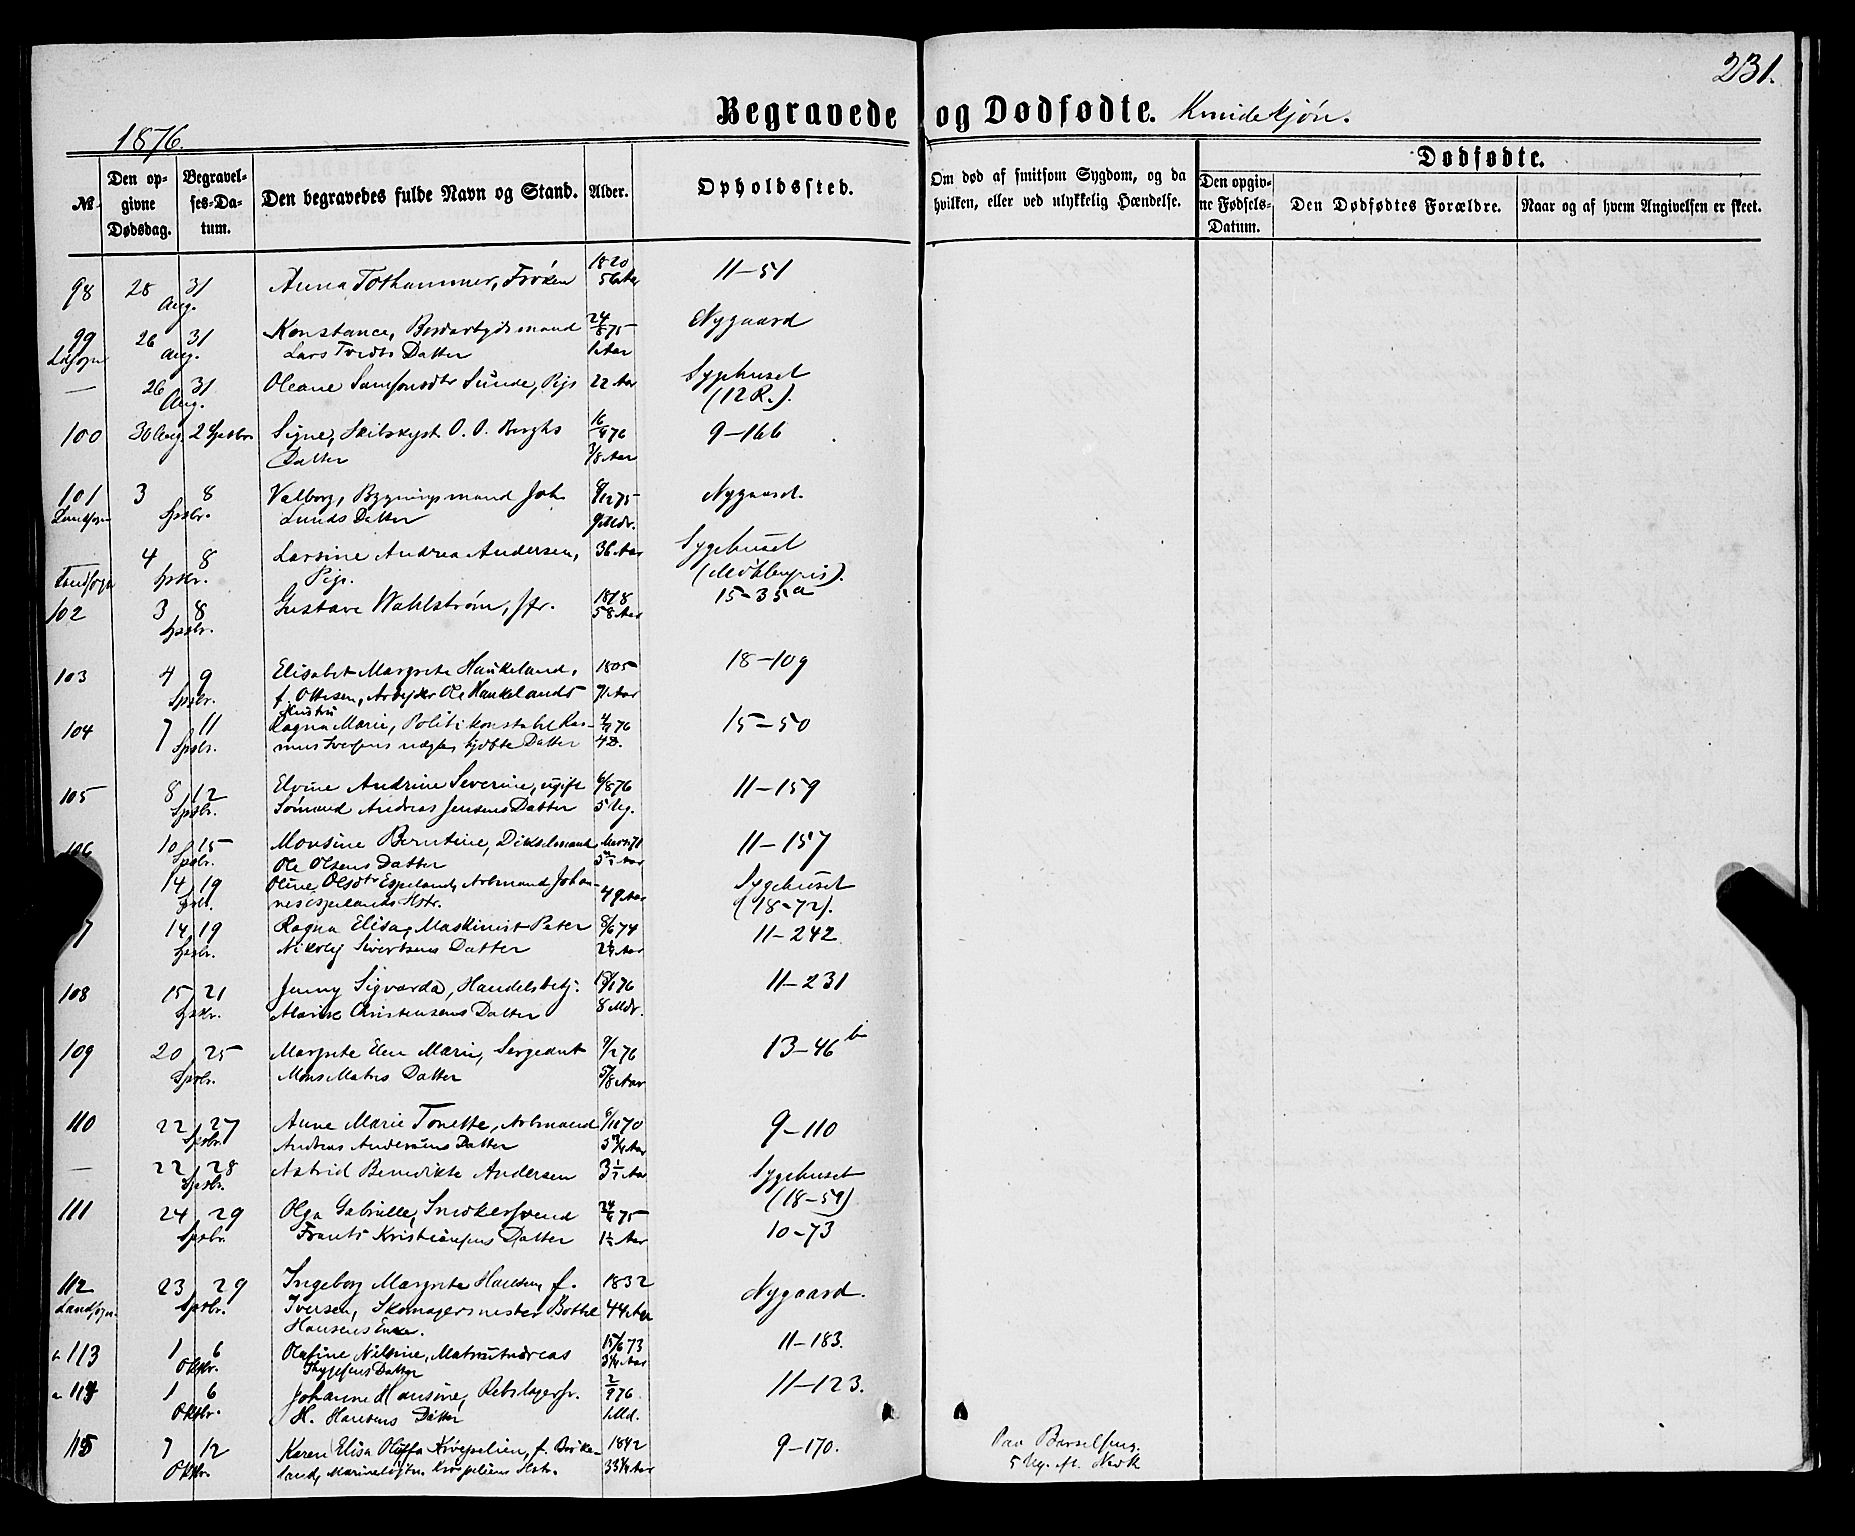 231.
Begravede og Dødfødte. Kvindekjøn.
1876.
Dødfødte.
№ Den opgivne Dødsdag. Begravelses-Datum. Den begravedes fulde Navn og Stand. Alder. Opholdssted. Om død af smitsom Sygdom, og da hvilken, eller ved ulykkelig Hændelse. Den opgivne Fødsels-Datum. Den Dødfødtes Forældre. Naar og af hvem Angivelsen er skeet.
98 28 31 Aug. Anna Tothammer, Frøken 1820 56 Aar 11-51
99 26 31 Konstance, mand 24/8 75 Nygaard
Aug. Lars Tvedts Datter 1 Aar
— 26 31 Oleane Samsonsdtr Sunde, Pige 22 Aar Sygehuset
Aug. (12 R.).
100 30 Aug 2 Septbr. Signe, O. O. Berghs 9-166
Datter 3/8 Aar
101 3 8 Valborg, Bygningsmand Joh. 8/12 75 Nygaard.
Landsogn Septbr. Lunds Datter 9 Mdr.
4 8 Larsine Andrea Andersen, 36 Aar Sygehuset
Landsogn Septbr. Pige.
102 3 8 Gustava Wahlstrøm, fr. 1818 15-35a
Septbr. 58 Aar
103 4 9 Elisabet Margrete Haukeland, 1805 18-109
Septbr. f. Ottesen, Arbejder Ole Haukelands 71 Aar
Hustru
104 7 11 Ragna Marie, Politikonstabel Ras- 4/9 76 15-50
Septbr. mus Iversens uægte, hjdøbte Datter 4 D.
105 8 12 Elvine Andrine Severine, ugift 6/8 76 11-159
Septbr. Sømand Andreas Jensens Datter 5 Ug.
106 10 15 Monsine Berntine, Dikselmand 11-157
Septbr. Ole Olsens Datter 5 1/2 Aar
14 19 Oline Olsdtr Espeland, Arbmand Johan- 49 Aar Sygehuset
Septbr. nes Espelands Hstr. (18-72).
7 14 19 Ragna Elisa, Maskinist Peter 8/6 74 11-242
Septbr. Nikolaj Sivertsens Datter 2 1/4 Aar
108 15 21 Jenny Sigvarda, Handelsbetj. 18/1 76 11-231
Septbr. Christensens Datter 8 Mdr.
109 20 25 Margrete Elen Marie, Sergeant 9/2 76 13-46 b
Septbr. Mons Matres Datter 5/8 Aar
110 22 27 Anne Marie Tonette, Arbmand 6/11 70 9-110
Septbr. Andreas Andersens Datter 5 3/4 Aar
— 22 28 Astrid Benedikte Andersen 3 1/2 Aar Sygehuset
Septbr. (18-59)
111 24 29 Olga Gabrielle, Snedkersvend 10-73
Septbr. Frants Kristiansens Datter 1 1/2 Aar
112 23 29 Ingeborg Margrete Hansen, f. 1832 Nygaard.
Landsogn. Septbr. Iversen, Skomagermester Bottel 44 Aar
Hansens Enke.
113 1 6 Olafine Nilsine, Matr Andreas 15/6 73 11-183.
Oktbr. Datter 3 1/4 Aar
114 1 6 Johanne Hansine, Rebslagersv. 2/9 76 11-123.
Oktbr. H. Hansens Datter 1 Md.
115 7 12 Karen Elisa Oluffa Krøepelien, f. Birke- 1842 9-170. Paa Barselseng.
Oktbr. land, Marineløjtn. Krøepeliens Hstr. 33 3/4 Aar 5 Ug. eft. Nedk